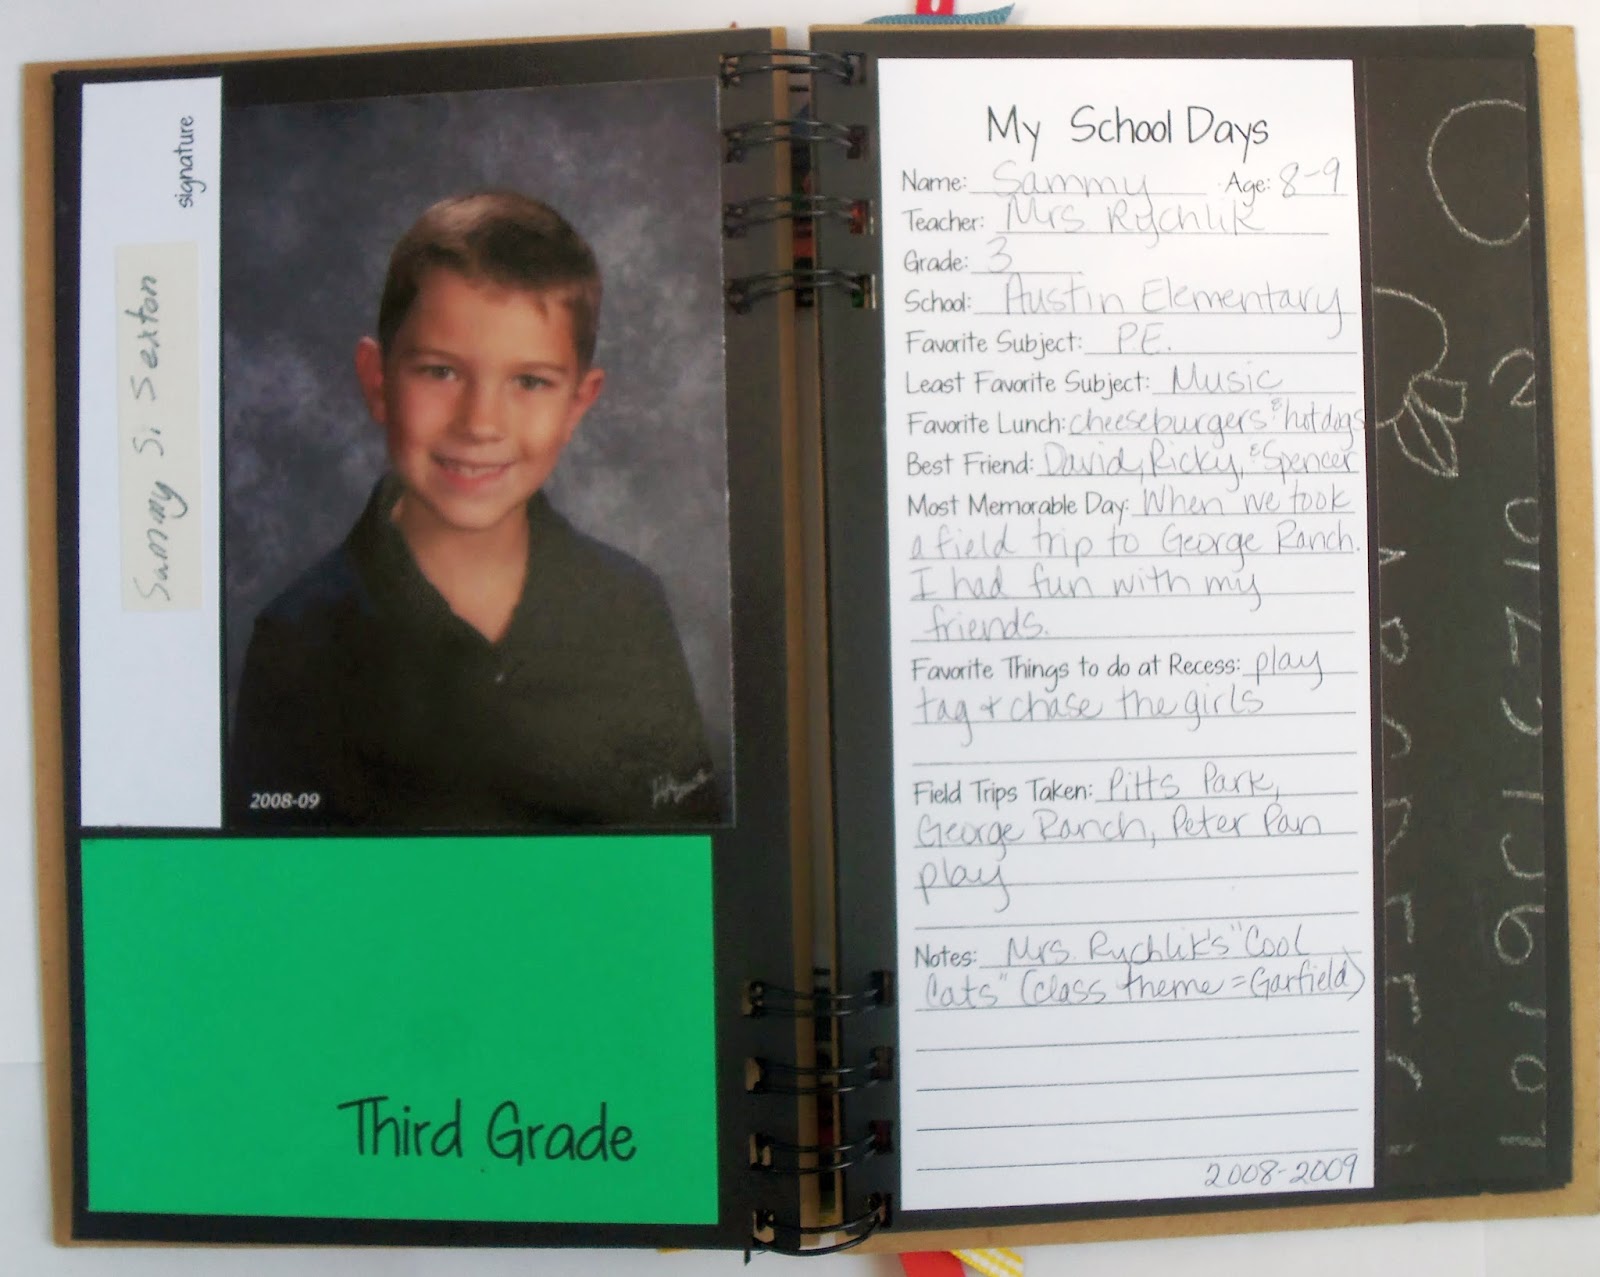 signature
Sammy Si Sexton
2008-09
Third Grade
My School Days
Name: Sammy Age: 8-9
Teacher: Mrs Rychlik
Grade: 3
School: Austin Elementary
Favorite Subject: P.E.
Least Favorite Subject: Music
Favorite Lunch: cheeseburgers & hotdogs
Best Friend: David, Ricky, & Spencer
Most Memorable Day: When we took
a field trip to George Ranch.
I had fun with my
friends.
Favorite Things to do at Recess: play
tag & chase the girls
Field Trips Taken: Pitts Park,
George Ranch, Peter Pan
play
Notes: Mrs. Rychlik's "Cool
Cats" (class theme = Garfield)
2008-2009